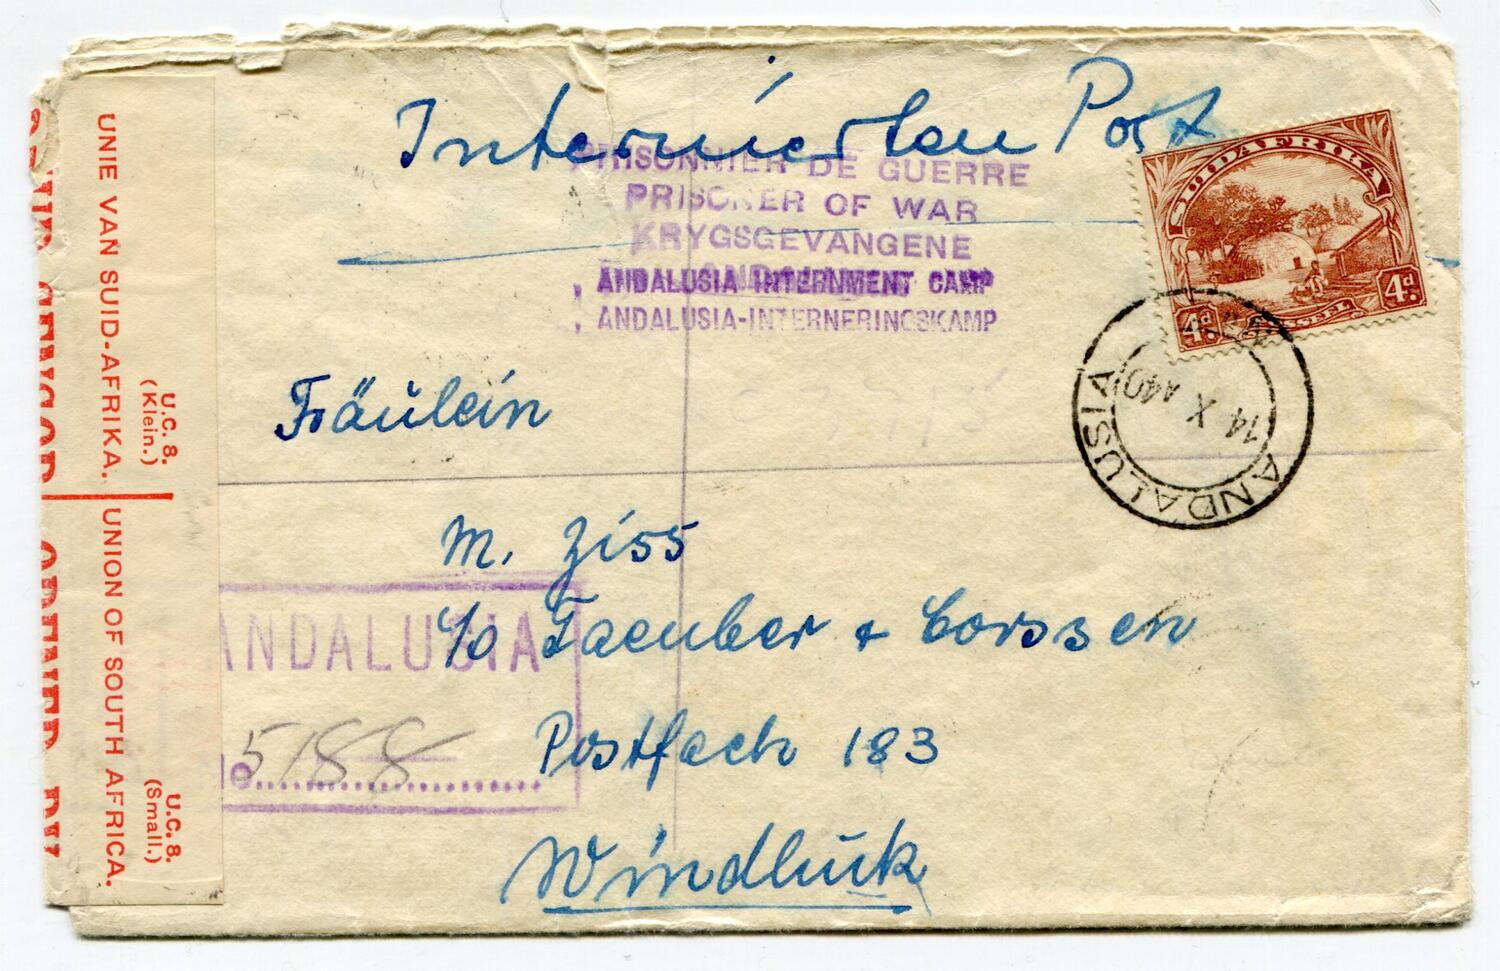 Internierten Post
PRISONNIER DE GUERRE
PRISONER OF WAR
KRYGSGEVANGENE
ANDALUSIA INTERNMENT CAMP
ANDALUSIA-INTERNERINGSKAMP
SUIDAFRIKA
4d.
4d.
ANDALUSIA
14 X A40
Fräulein
M. Ziss
c/o Taeuber & Corssen
Postfach 183
Windhuk
ANDALUSIA
No. 5188
UNIE VAN SUID-AFRIKA.
UNION OF SOUTH AFRICA.
U.C. 8.
(Klein.)
U.C. 8.
(Small.)
OPENED BY